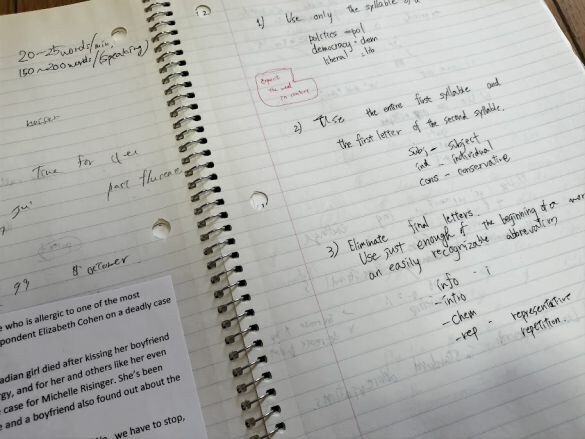 20-25 words/min.
150~200 words/(speaking)
Time for
past
8 october
99
e who is allergic to one of the most
pondent Elizabeth Cohen on a deadly case
adian girl died after kissing her boyfriend
gy, and for her and others like her even
case for Michelle Risinger. She's been
e and a boyfriend also found out about the
we have to stop,
1) Use only the syllable of a
politics - pol
democracy - dem
liberal - lib
2) Use the entire first syllable and
the first letter of the second syllable.
subj - subject
ind - individual
cons - conservative
3) Eliminate final letters.
Use just enough of the beginning of a
an easily recognizable abbreviation
info - i
- intro
- chem
- rep - representative
repetition